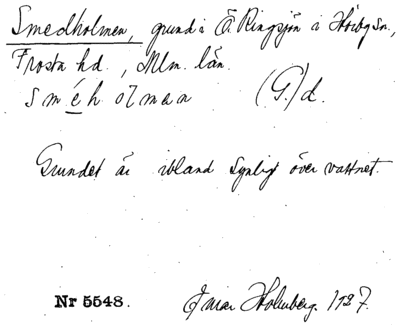 Smedholmen, grund i Ö. Ringsjön i Hörby sn.,
Frosta hd., Mlm. län.
sméholmen (G.)d.
Grundet är ibland synligt över vattnet.
Nr 5548. Ingvar Holmberg. 1927.